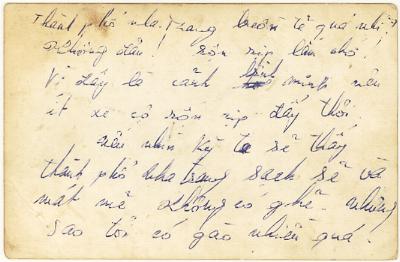 Thành phố Nha Trang buồn tẻ quá nhỉ?
Không đâu! rộn rịp lắm chớ
Vì đây là cảnh bình minh nên
ít xe cộ rộn rịp đấy thôi.
nếu nhìn kỹ ta sẽ thấy
thành phố nha trang sạch sẽ và
mát mẻ không có ghê. nhưng
sao tôi có gào nhiều quá.